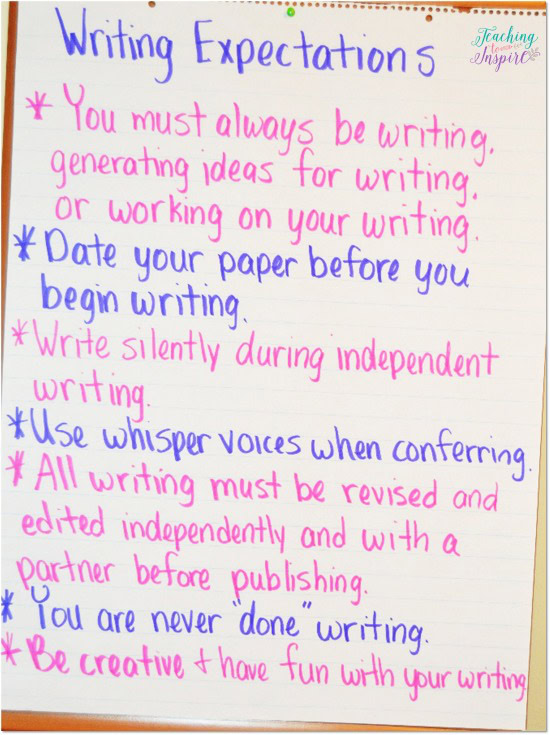 Writing Expectations
Teaching
to
Inspire
* You must always be writing,
generating ideas for writing,
or working on your writing.
* Date your paper before you
begin writing.
* Write silently during independent
writing.
* Use whisper voices when conferring.
* All writing must be revised and
edited independently and with a
partner before publishing.
* You are never "done" writing.
* Be creative + have fun with your writing